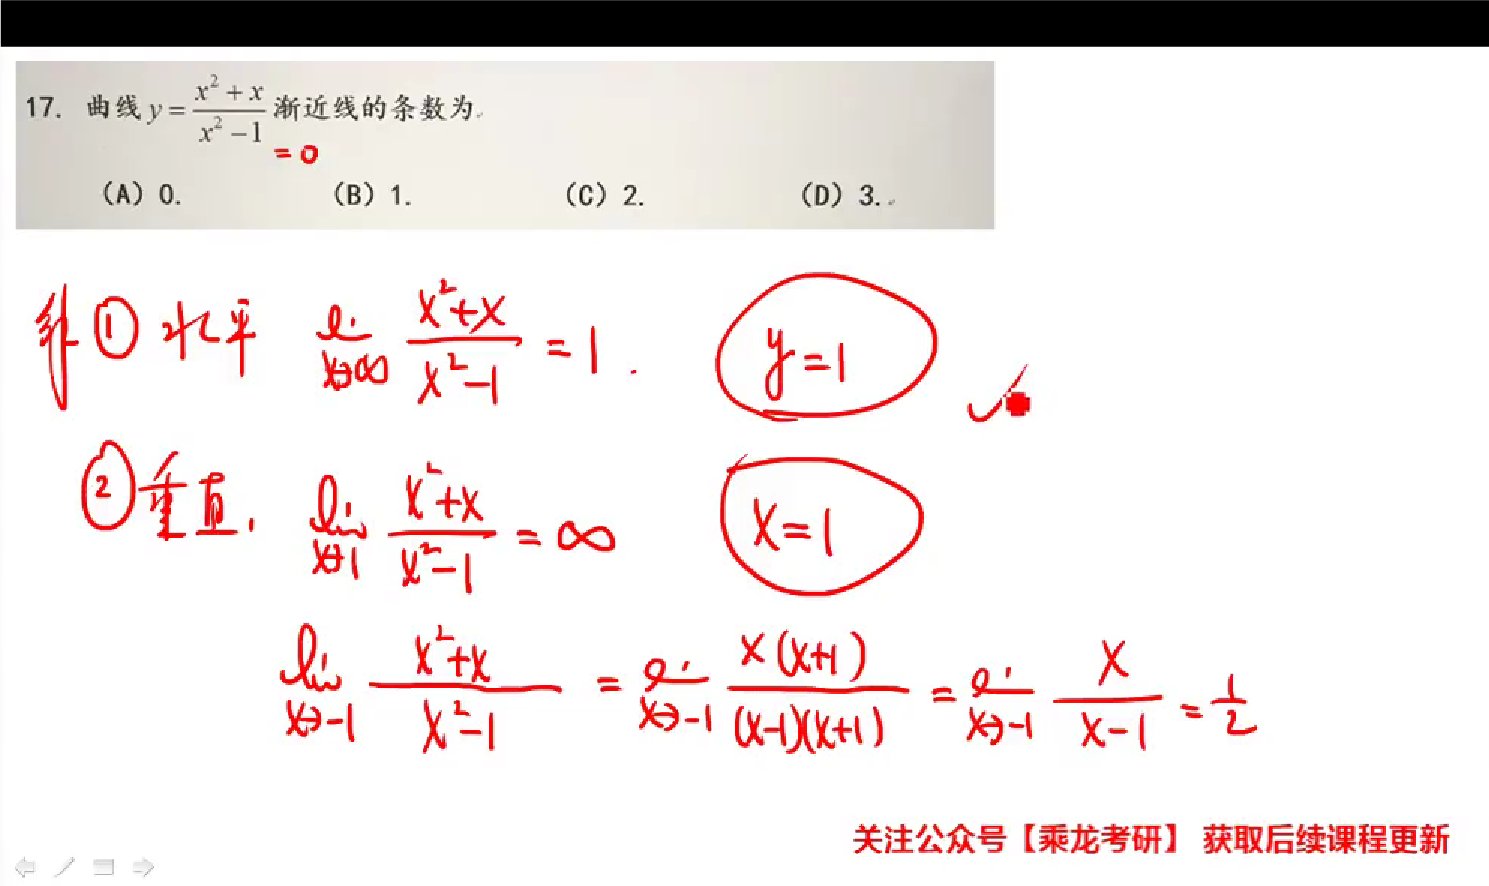 17. 曲线 y = (x² + x)/(x² − 1) 渐近线的条数为.
= 0
(A) 0. (B) 1. (C) 2. (D) 3.
① 水平 lim x→∞ (x²+x)/(x²-1) = 1. y=1 ✓
② 垂直. lim x→1 (x²+x)/(x²-1) = ∞ x=1
lim x→-1 (x²+x)/(x²-1) = lim x→-1 x(x+1)/(x-1)(x+1) = lim x→-1 x/(x-1) = 1/2
关注公众号【乘龙考研】 获取后续课程更新